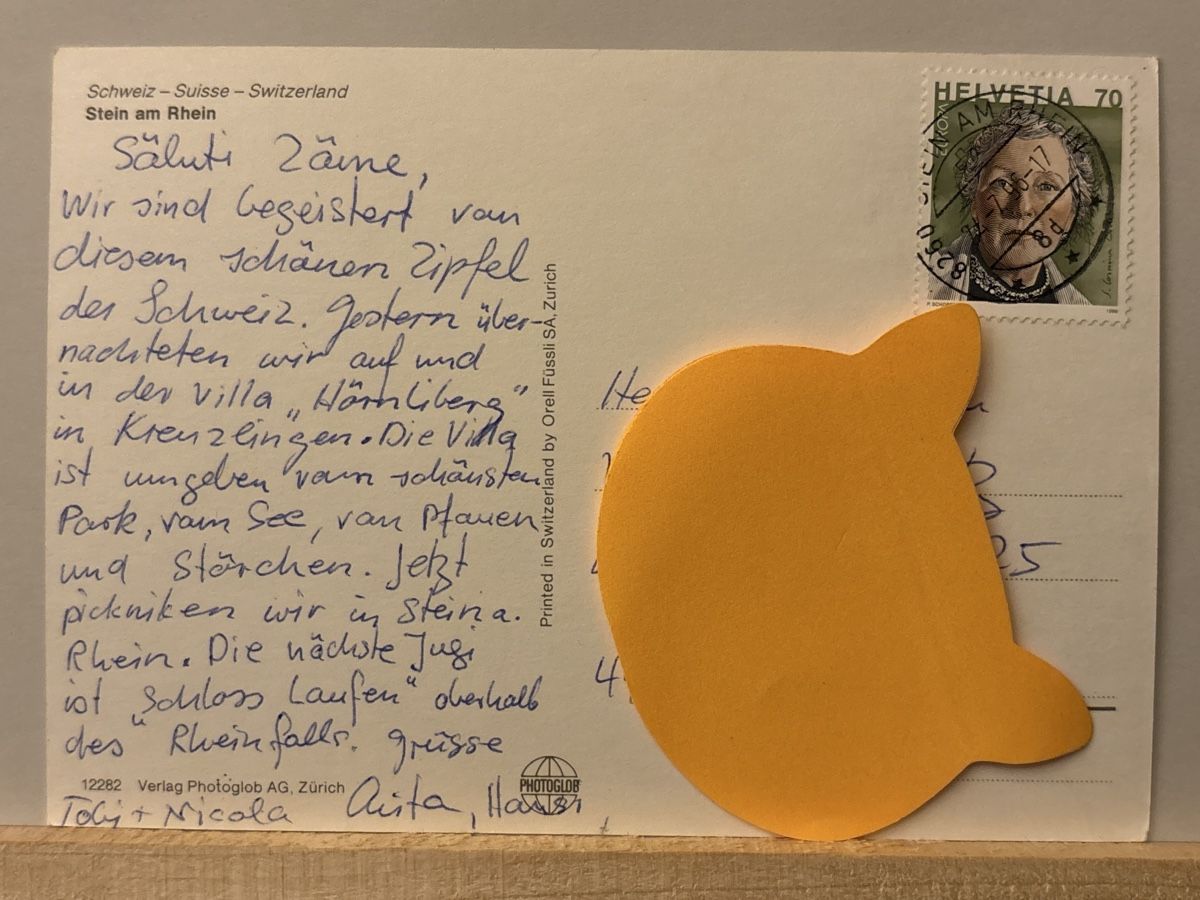 Schweiz – Suisse – Switzerland
Stein am Rhein
Säluti Zäme,
Wir sind begeistert von
diesem schönen Zipfel
der Schweiz. Gestern über-
nachteten wir auf und
in der Villa „Hörnliberg"
in Kreuzlingen. Die Villa
ist umgeben vom schönsten
Park, vom See, von Pfauen
und Störchen. Jetzt
pickniken wir in Stein a.
Rhein. Die nächste Jugi
ist "Schloss Laufen" oberhalb
des Rheinfalls. Grüsse
Anita, Hansi,
Tobi + Nicola
12282 Verlag Photoglob AG, Zürich
PHOTOGLOB
Printed in Switzerland by Orell Füssli SA, Zurich
HELVETIA 70
EUROPA
8260 STEIN AM RHEIN
He
25
4